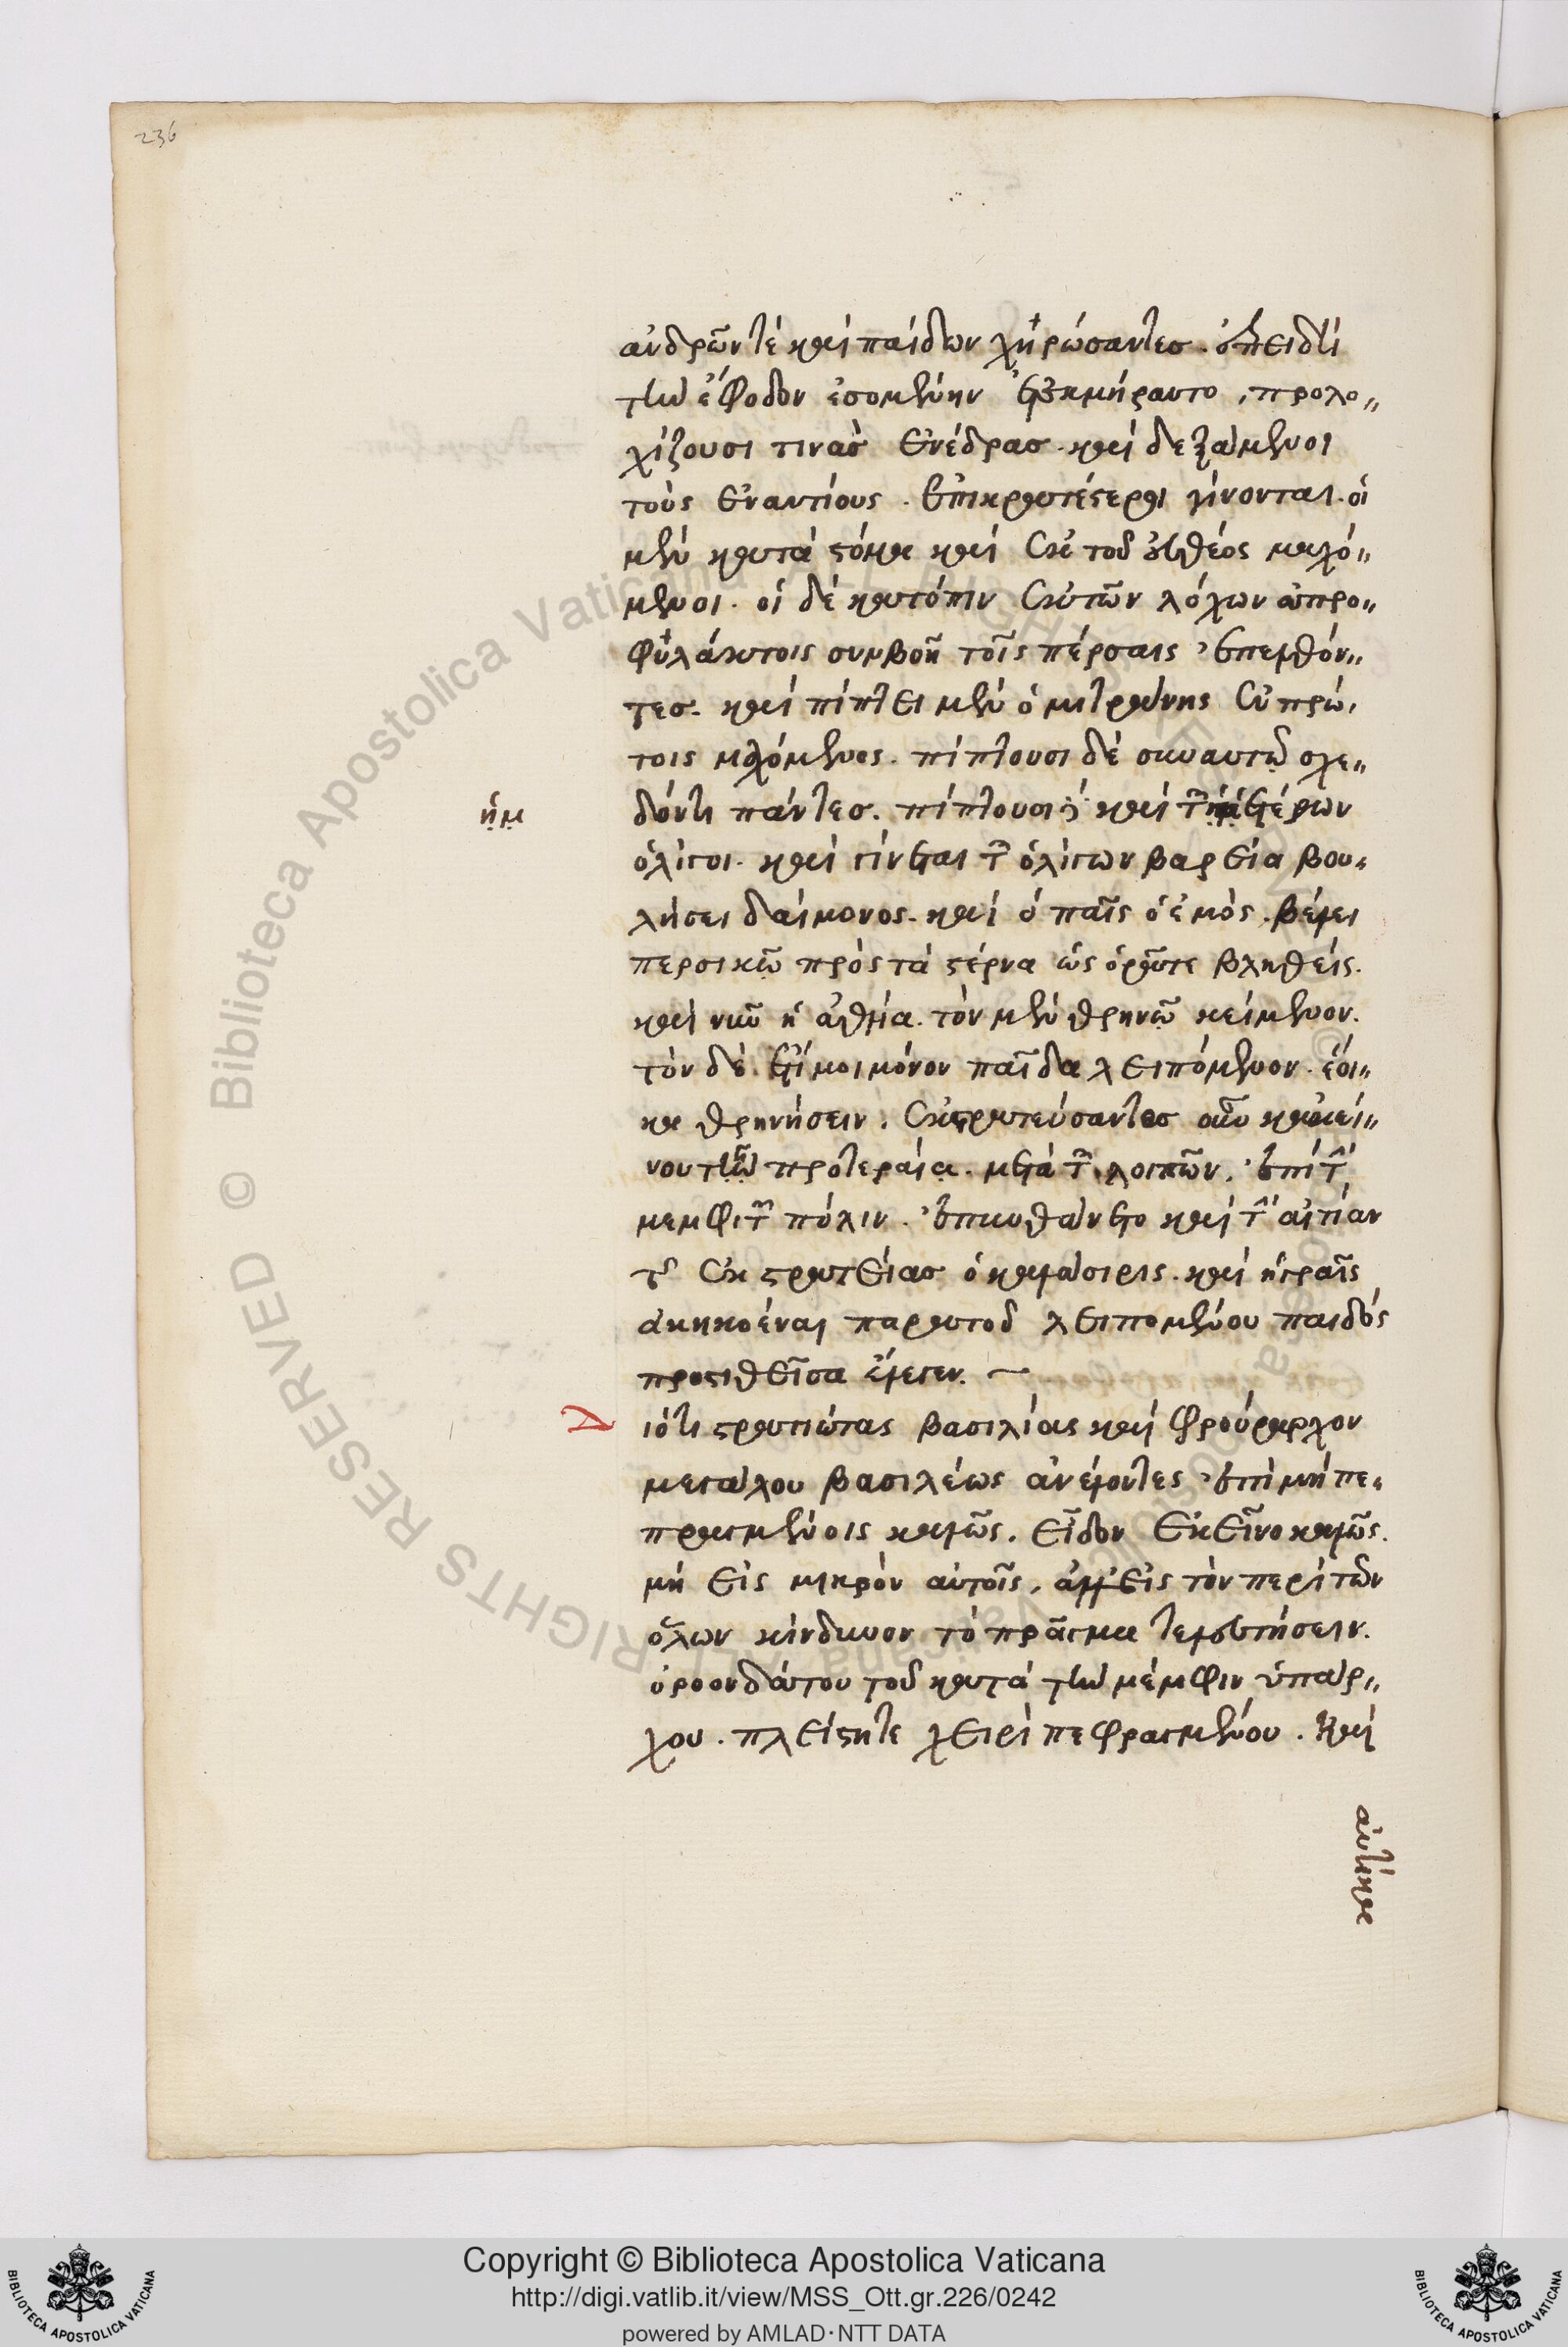 236
ἀνδρῶν τὲ καὶ παίδων χηρώσαντες. ἐπειδὴ
τὴν ἔφοδον ἐσομένην ἐτεκμήραντο, προλο„
χίζουσι τινὰς ἐνέδρας. καὶ δεξάμενοι
τοὺς ἐναντίους. ἐπικρατέστεροι γίνονται. οἱ
μὲν κατὰ στόμα καὶ ἐκ τοῦ εὐθέος μαχό„
μενοι. οἱ δὲ κατόπιν ἐκ τῶν λόχων ἀπρο„
φυλάκτοις συμβοῆ τοῖς πέρσαις, ἐπελθόν„
τες. καὶ πίπτει μὲν ὁ μιτράνης ἐν πρώ„
τοις μαχόμενος. πίπτουσι δὲ σὺν αυτῶ σχε„
δόν τι πάντες. πίπτουσι δὲ καὶ τῶν ἡμετέρων
ἡμ
ὀλίγοι. καὶ γίνεται τῶν ὀλίγων βαρεία βου„
λήσει δαίμονος. καὶ ὁ παῖς ὁ ἐμὸς. βέλει
περσικῶ πρὸς τὰ στέρνα ὡς ὁρᾶτε βληθείς.
καὶ νῦν ἡ ἀθλία. τὸν μὲν θρηνῶ κείμενον.
τὸν δὲ ἔτι μοι μόνον παῖδα λειπόμενον. ἔοι„
κα θρηνήσειν. ἐκστρατεύσαντος οὖν κἀκεί„
νου τῆ προτεραία. μετὰ τῶν λοιπῶν. ἐπὶ τὴν
μεμφιτῶν πόλιν. ἐπυνθάνετο καὶ τὴν αἰτίαν
τῆς ἐκστρατείας ὁ καλάσιρις. καὶ ἡ γραῦς
ἀκηκοέναι παρὰ τοῦ λειπομένου παιδός
προστιθεῖσα ἔλεγεν. ~
Διότι στρατιώτας βασιλίας καὶ φρούραρχον
μεγάλου βασιλέως ἀνελόντες, ἐπὶ μὴ πε„
πραγμένοις καλῶς. εἶδον ἐκεῖνο καλῶς.
μὴ εἰς μικρὸν αὐτοῖς, ἀλλ' εἰς τὸν περὶ τῶν
ὅλων κίνδυνον τὸ πρᾶγμα τελευτήσειν.
ὀροονδάτου τοῦ κατὰ τὴν μέμφιν ὑπάρ„
χου. πλείστη τε χειρὶ πεφραγμένου. καὶ
αὐτίκα
Copyright © Biblioteca Apostolica Vaticana
http://digi.vatlib.it/view/MSS_Ott.gr.226/0242
powered by AMLAD·NTT DATA